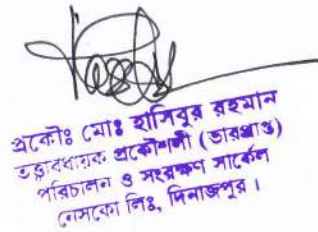 প্রকৌঃ মোঃ হাসিবুর রহমান
তত্ত্বাবধায়ক প্রকৌশলী (ভারপ্রাপ্ত)
পরিচালন ও সংরক্ষণ সার্কেল
নেসকো লিঃ, দিনাজপুর।